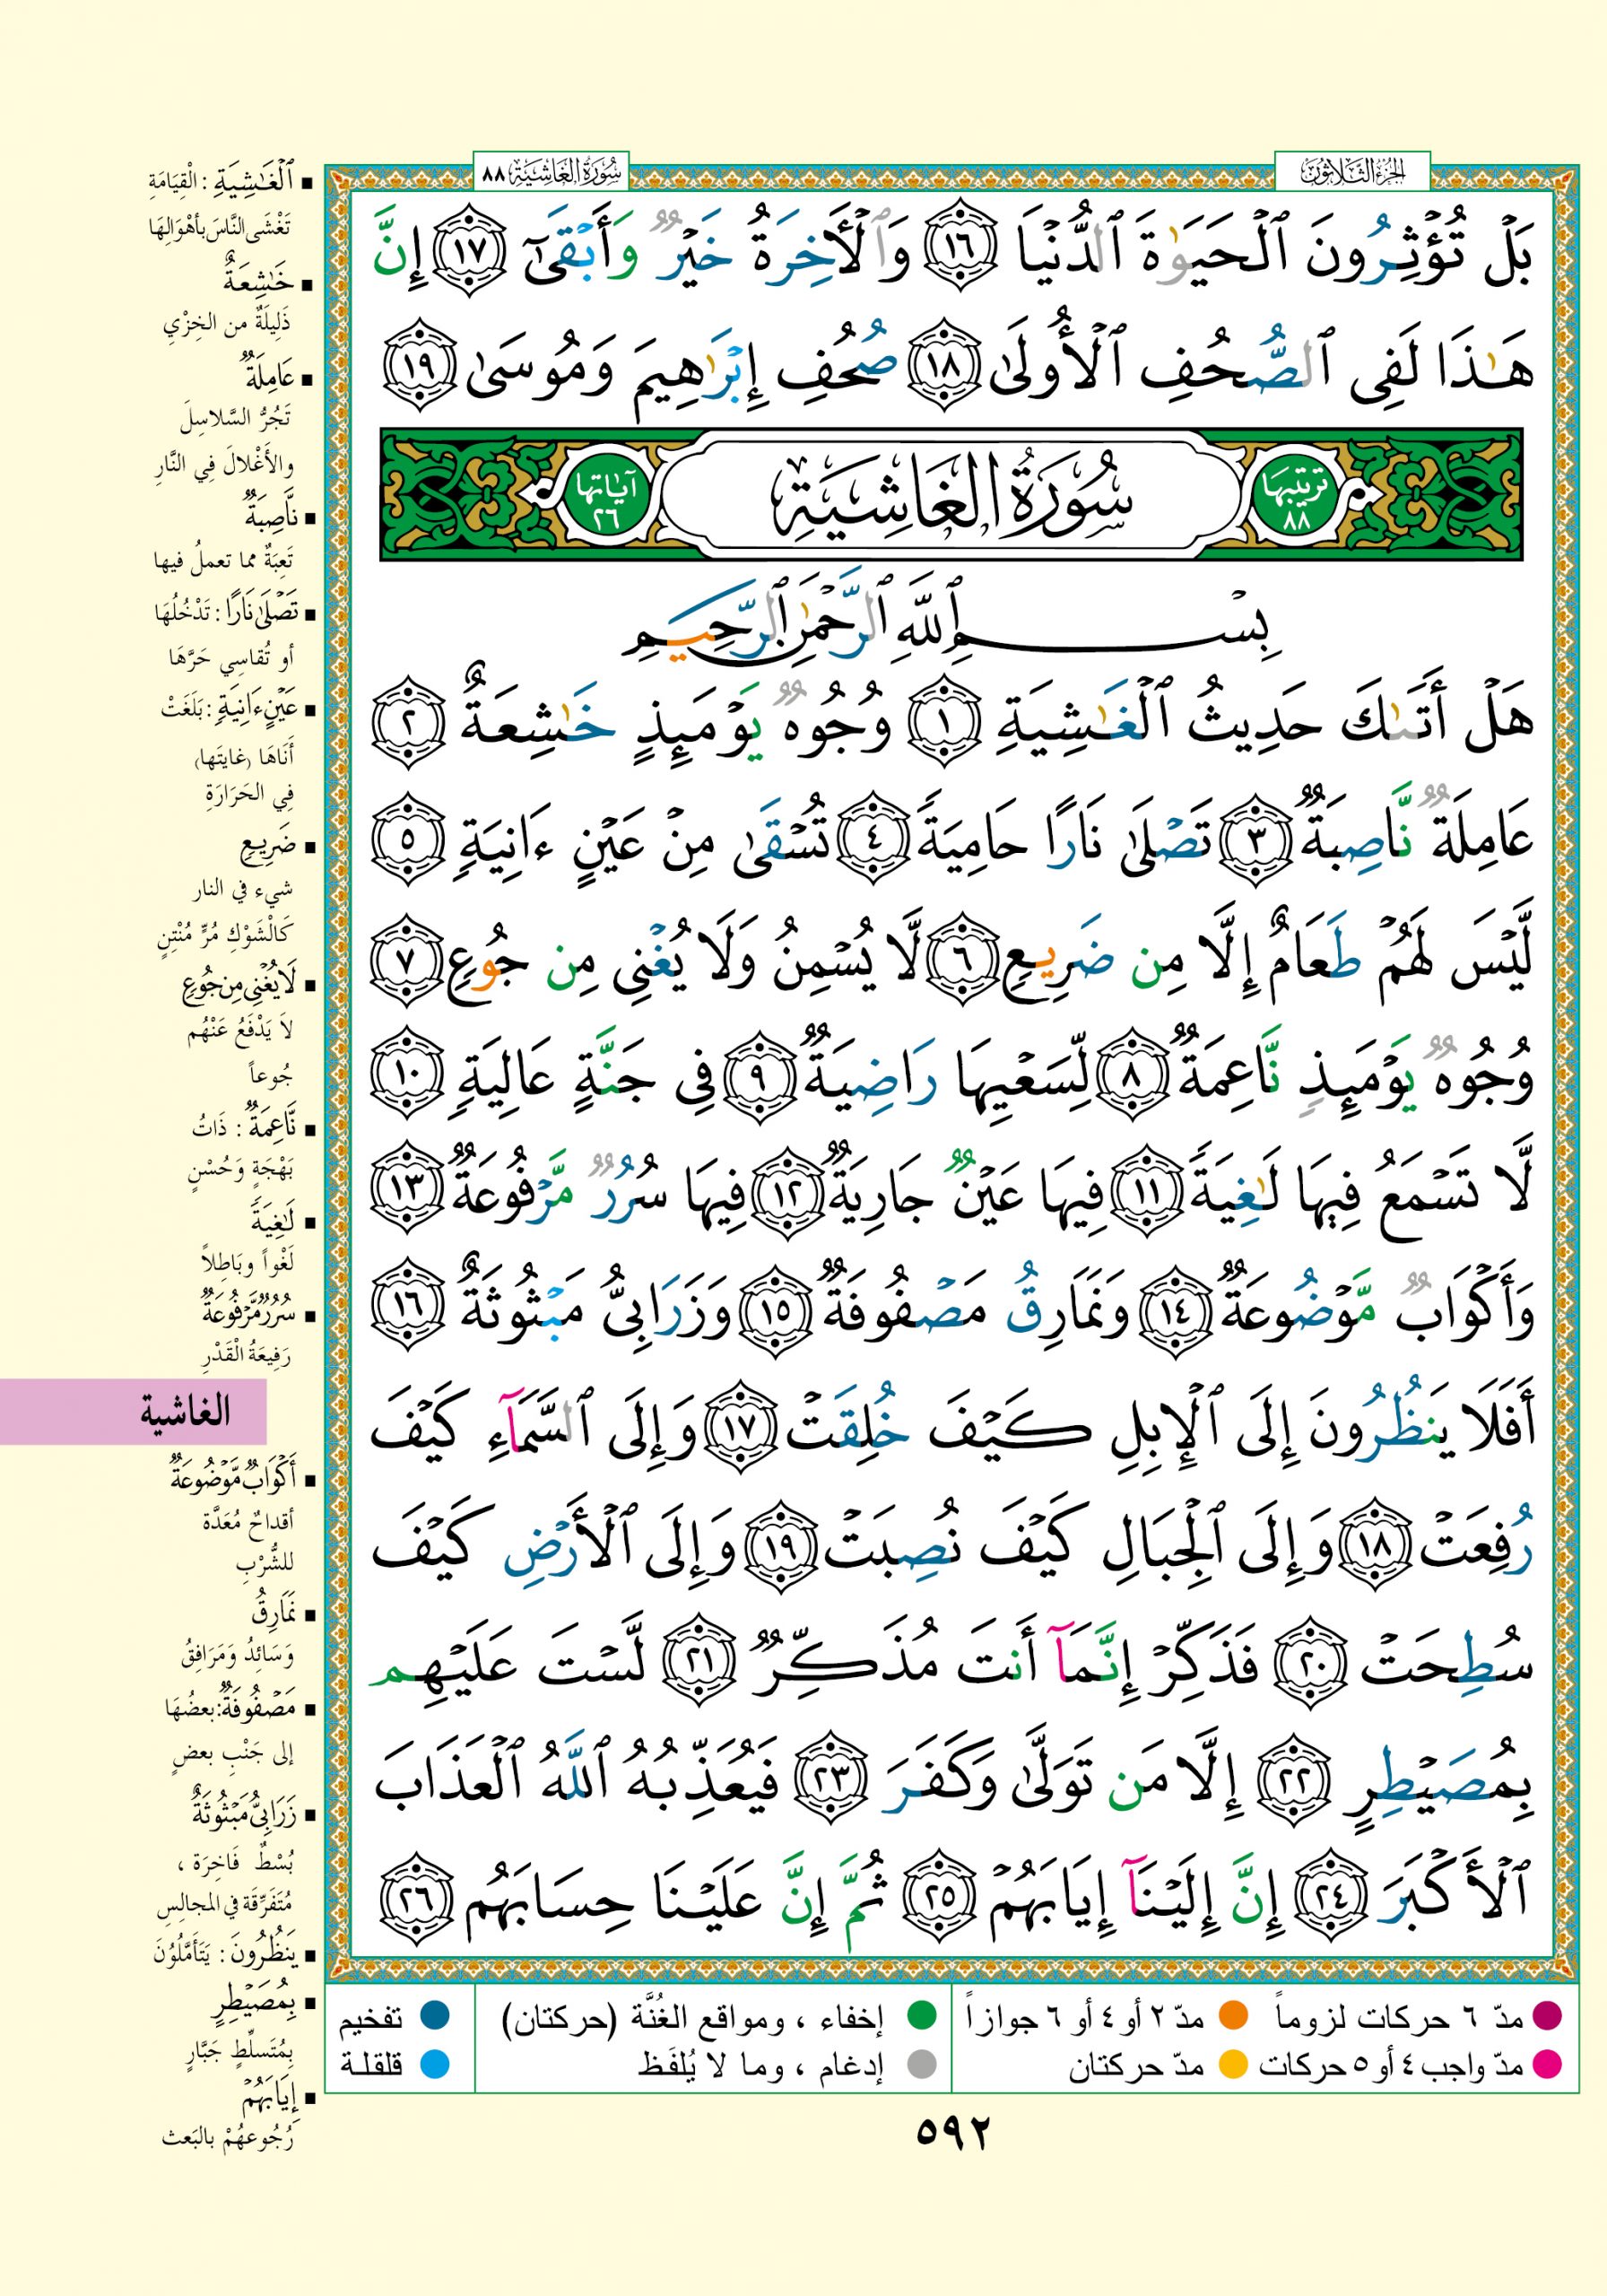 الجزء الثلاثون
سورة الغاشية ٨٨
بَلۡ تُؤۡثِرُونَ ٱلۡحَيَوٰةَ ٱلدُّنۡيَا ١٦ وَٱلۡأَخِرَةُ خَيۡرٞ وَأَبۡقَىٰٓ ١٧ إِنَّ
هَٰذَا لَفِي ٱلصُّحُفِ ٱلۡأُولَىٰ ١٨ صُحُفِ إِبۡرَٰهِيمَ وَمُوسَىٰ ١٩
ترتيبها ٨٨ سُورَةُ الغَاشِيَة آياتها ٢٦
بِسۡمِ ٱللَّهِ ٱلرَّحۡمَٰنِ ٱلرَّحِيمِ
هَلۡ أَتَىٰكَ حَدِيثُ ٱلۡغَٰشِيَةِ ١ وُجُوهٞ يَوۡمَئِذٍ خَٰشِعَةٌ ٢
عَامِلَةٞ نَّاصِبَةٞ ٣ تَصۡلَىٰ نَارًا حَامِيَةٗ ٤ تُسۡقَىٰ مِنۡ عَيۡنٍ ءَانِيَةٖ ٥
لَّيۡسَ لَهُمۡ طَعَامٌ إِلَّا مِن ضَرِيعٖ ٦ لَّا يُسۡمِنُ وَلَا يُغۡنِي مِن جُوعٖ ٧
وُجُوهٞ يَوۡمَئِذٖ نَّاعِمَةٞ ٨ لِّسَعۡيِهَا رَاضِيَةٞ ٩ فِي جَنَّةٍ عَالِيَةٖ ١٠
لَّا تَسۡمَعُ فِيهَا لَٰغِيَةٗ ١١ فِيهَا عَيۡنٞ جَارِيَةٞ ١٢ فِيهَا سُرُرٞ مَّرۡفُوعَةٞ ١٣
وَأَكۡوَابٞ مَّوۡضُوعَةٞ ١٤ وَنَمَارِقُ مَصۡفُوفَةٞ ١٥ وَزَرَابِيُّ مَبۡثُوثَةٌ ١٦
أَفَلَا يَنظُرُونَ إِلَى ٱلۡإِبِلِ كَيۡفَ خُلِقَتۡ ١٧ وَإِلَى ٱلسَّمَآءِ كَيۡفَ
رُفِعَتۡ ١٨ وَإِلَى ٱلۡجِبَالِ كَيۡفَ نُصِبَتۡ ١٩ وَإِلَى ٱلۡأَرۡضِ كَيۡفَ
سُطِحَتۡ ٢٠ فَذَكِّرۡ إِنَّمَآ أَنتَ مُذَكِّرٞ ٢١ لَّسۡتَ عَلَيۡهِم
بِمُصَيۡطِرٍ ٢٢ إِلَّا مَن تَوَلَّىٰ وَكَفَرَ ٢٣ فَيُعَذِّبُهُ ٱللَّهُ ٱلۡعَذَابَ
ٱلۡأَكۡبَرَ ٢٤ إِنَّ إِلَيۡنَآ إِيَابَهُمۡ ٢٥ ثُمَّ إِنَّ عَلَيۡنَا حِسَابَهُم ٢٦
ٱلۡغَٰشِيَةِ : الْقِيَامَةِ
تَغْشَى النَّاسَ بأهْوَالِهَا
خَٰشِعَةٌ
ذَلِيلَةٌ من الخِزْيِ
عَامِلَةٞ
تَجُرُّ السَّلاسِلَ
والأَغْلالَ فِي النَّارِ
نَّاصِبَةٞ
تَعِبَةٌ مما تعملُ فيها
تَصۡلَىٰ نَارًا : تَدْخُلُهَا
أو تُقاسِي حَرَّهَا
عَيۡنٍ ءَانِيَةٖ : بَلَغَتْ
أَنَاهَا (غايَتَها)
فِي الحَرَارَةِ
ضَرِيعٖ
شيء في النار
كَالْشَوْكِ مُرٍّ مُنْتِنٍ
لَا يُغۡنِي مِن جُوعٖ
لاَ يَدْفَعُ عَنْهُم
جُوعاً
نَّاعِمَةٞ : ذَاتُ
بَهْجَةٍ وَحُسْنٍ
لَٰغِيَةٗ
لَغْواً وبَاطِلاً
سُرُرٞ مَّرۡفُوعَةٞ
رَفِيعَةُ الْقَدْرِ
الغاشية
أَكۡوَابٞ مَّوۡضُوعَةٞ
أقداحٌ مُعَدَّة
للشُّرْبِ
نَمَارِقُ
وَسَائِدُ وَمَرَافِقُ
مَصۡفُوفَةٞ : بعضُهَا
إلى جَنْبِ بعضٍ
زَرَابِيُّ مَبۡثُوثَةٌ
بُسْطٌ فَاخِرَة ،
مُتَفَرِّقَة في المجالِسِ
يَنظُرُونَ : يَتَأَمَّلُوْنَ
بِمُصَيۡطِرٍ
بِمُتَسلِّطٍ جَبَّارٍ
إِيَابَهُمۡ
رُجُوعهُمْ بالبَعث
مدّ ٦ حركات لزوماً مدّ ٢ أو ٤ أو ٦ جوازاً إخفاء ، ومواقع الغُنَّة (حركتان) تفخيم
مدّ واجب ٤ أو ٥ حركات مدّ حركتان إدغام ، وما لا يُلفَظ قلقلة
٥٩٢